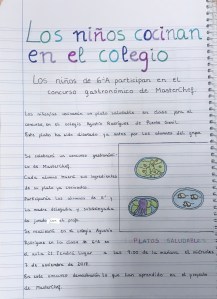 Los niños cocinan
en el colegio
Los niños de 6ºA participan en el
concurso gastronómico de MasterChef.
Los niños cocinarán un plato saludable en clase para el
concurso en el colegio Agustín Rodríguez de Puente Genil.
Este plato ha sido diseñado ya antes por los alumnos del grupo.
Se celebrará un concurso gastronómi-
co de MasterChef.
Cada alumno traerá sus ingredientes
de su plato ya cocinado.
Participarán los alumnos de 6º y
de jurado el profe.
Se realizará en el colegio Agustín
Rodríguez en la clase de 6ºA en
el aula 11. Tendrá lugar a las 9:00 de la mañana el miércoles
de noviembre de 2018.
En este concurso demostrarán lo que han aprendido en el proyecto
de MasterChef.
PLATOS SALUDABLES